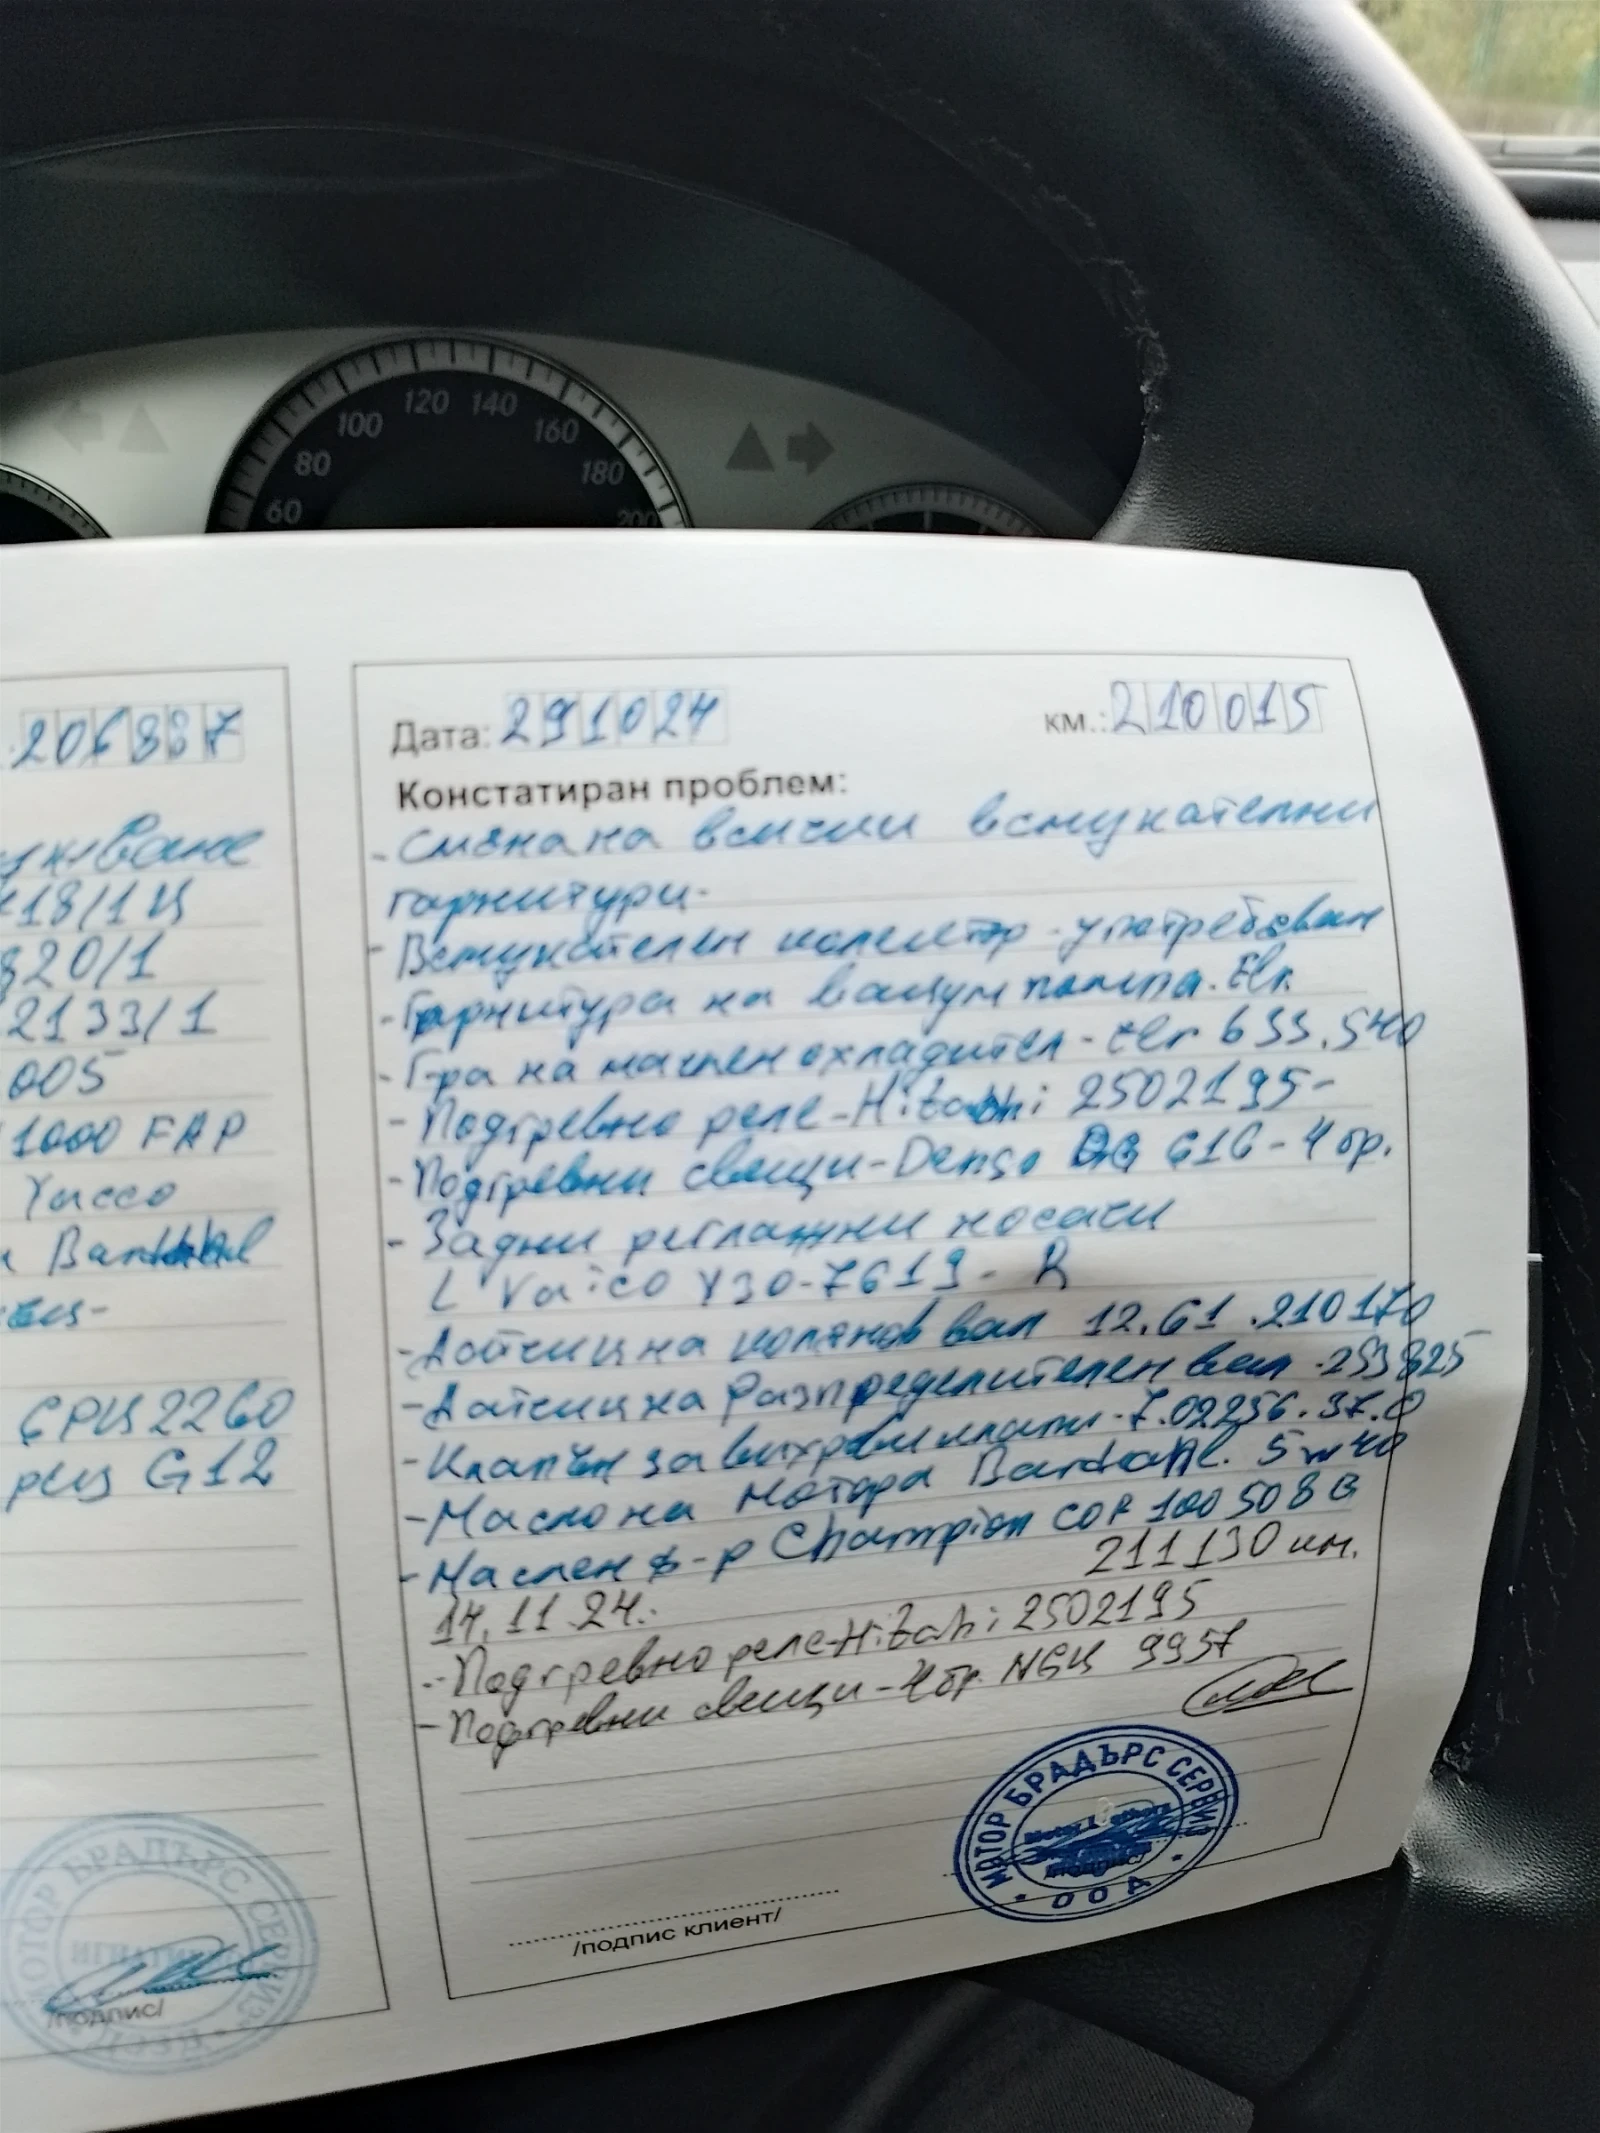 60
80
100
120
140
160
180
200
206887
18/1 Ц
820/1
2133/1
005
1000 FAP
Yacco
Bardahl
2260
G12
/подпис/
Дата: 291024 км.: 210015
Констатиран проблем:
- Смяна на всички всмукателни
гарнитури-
- Всмукателен колектор - употребяван
- Гарнитура на вакуум помпа. Elr.
- Г-ра на маслен охладител - elr 633.540
- Подгревно реле - Hitachi 2502195-
- Подгревни свещи - Denso DG 616 - 4 бр.
- Задни реглажни носачи
L Vaico V30-7619 - R
- Датчик на колянов вал 12.61.210170
- Датчик на Разпределителен вал - 253825
- Клапън за вихрови клапи - 7.02256.37.0
- Масло на мотора Bardahl. 5w40
- Маслен ф-р Champion COF 100508G
14.11.24. 211130 км.
- Подгревно реле - Hitachi 2502195
- Подгревни свещи - 4 бр. NGK 9957
МОТОР БРАДЪРС СЕРВИЗ
ООД
/подпис клиент/